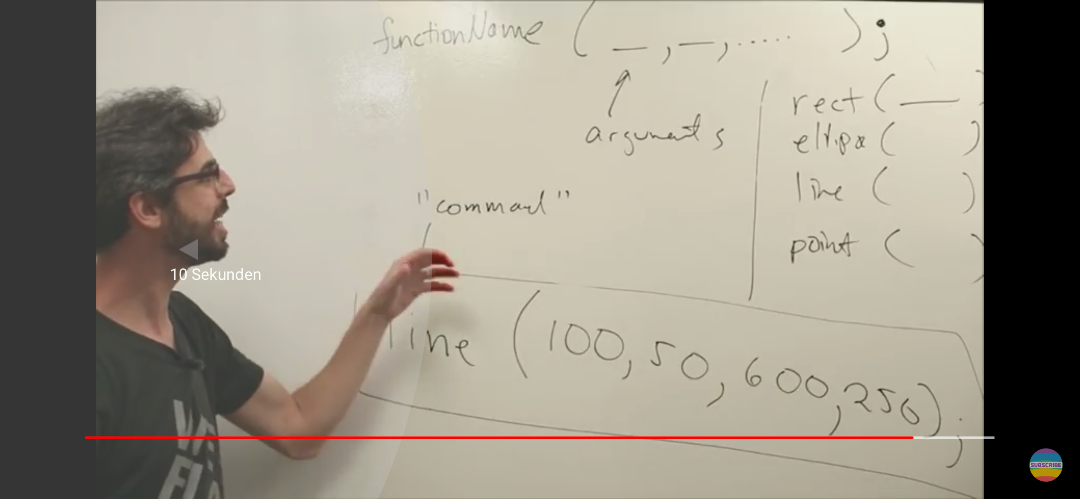 functionName ( _ , _ , ..... ) ;
arguments
rect ( _
ellipse ( )
line ( )
point ( )
"command"
line (100, 50, 600, 250);
10 Sekunden
SUBSCRIBE